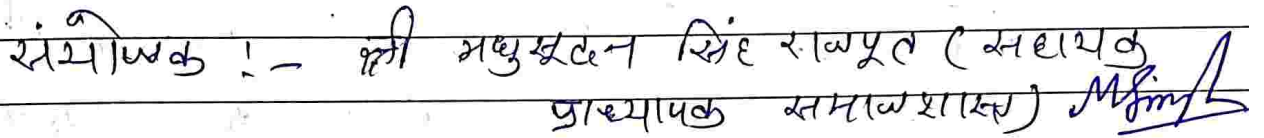 संयोजक :- श्री मधुसूदन सिंह राजपूत (सहायक
प्राध्यापक समाजशास्त्र)